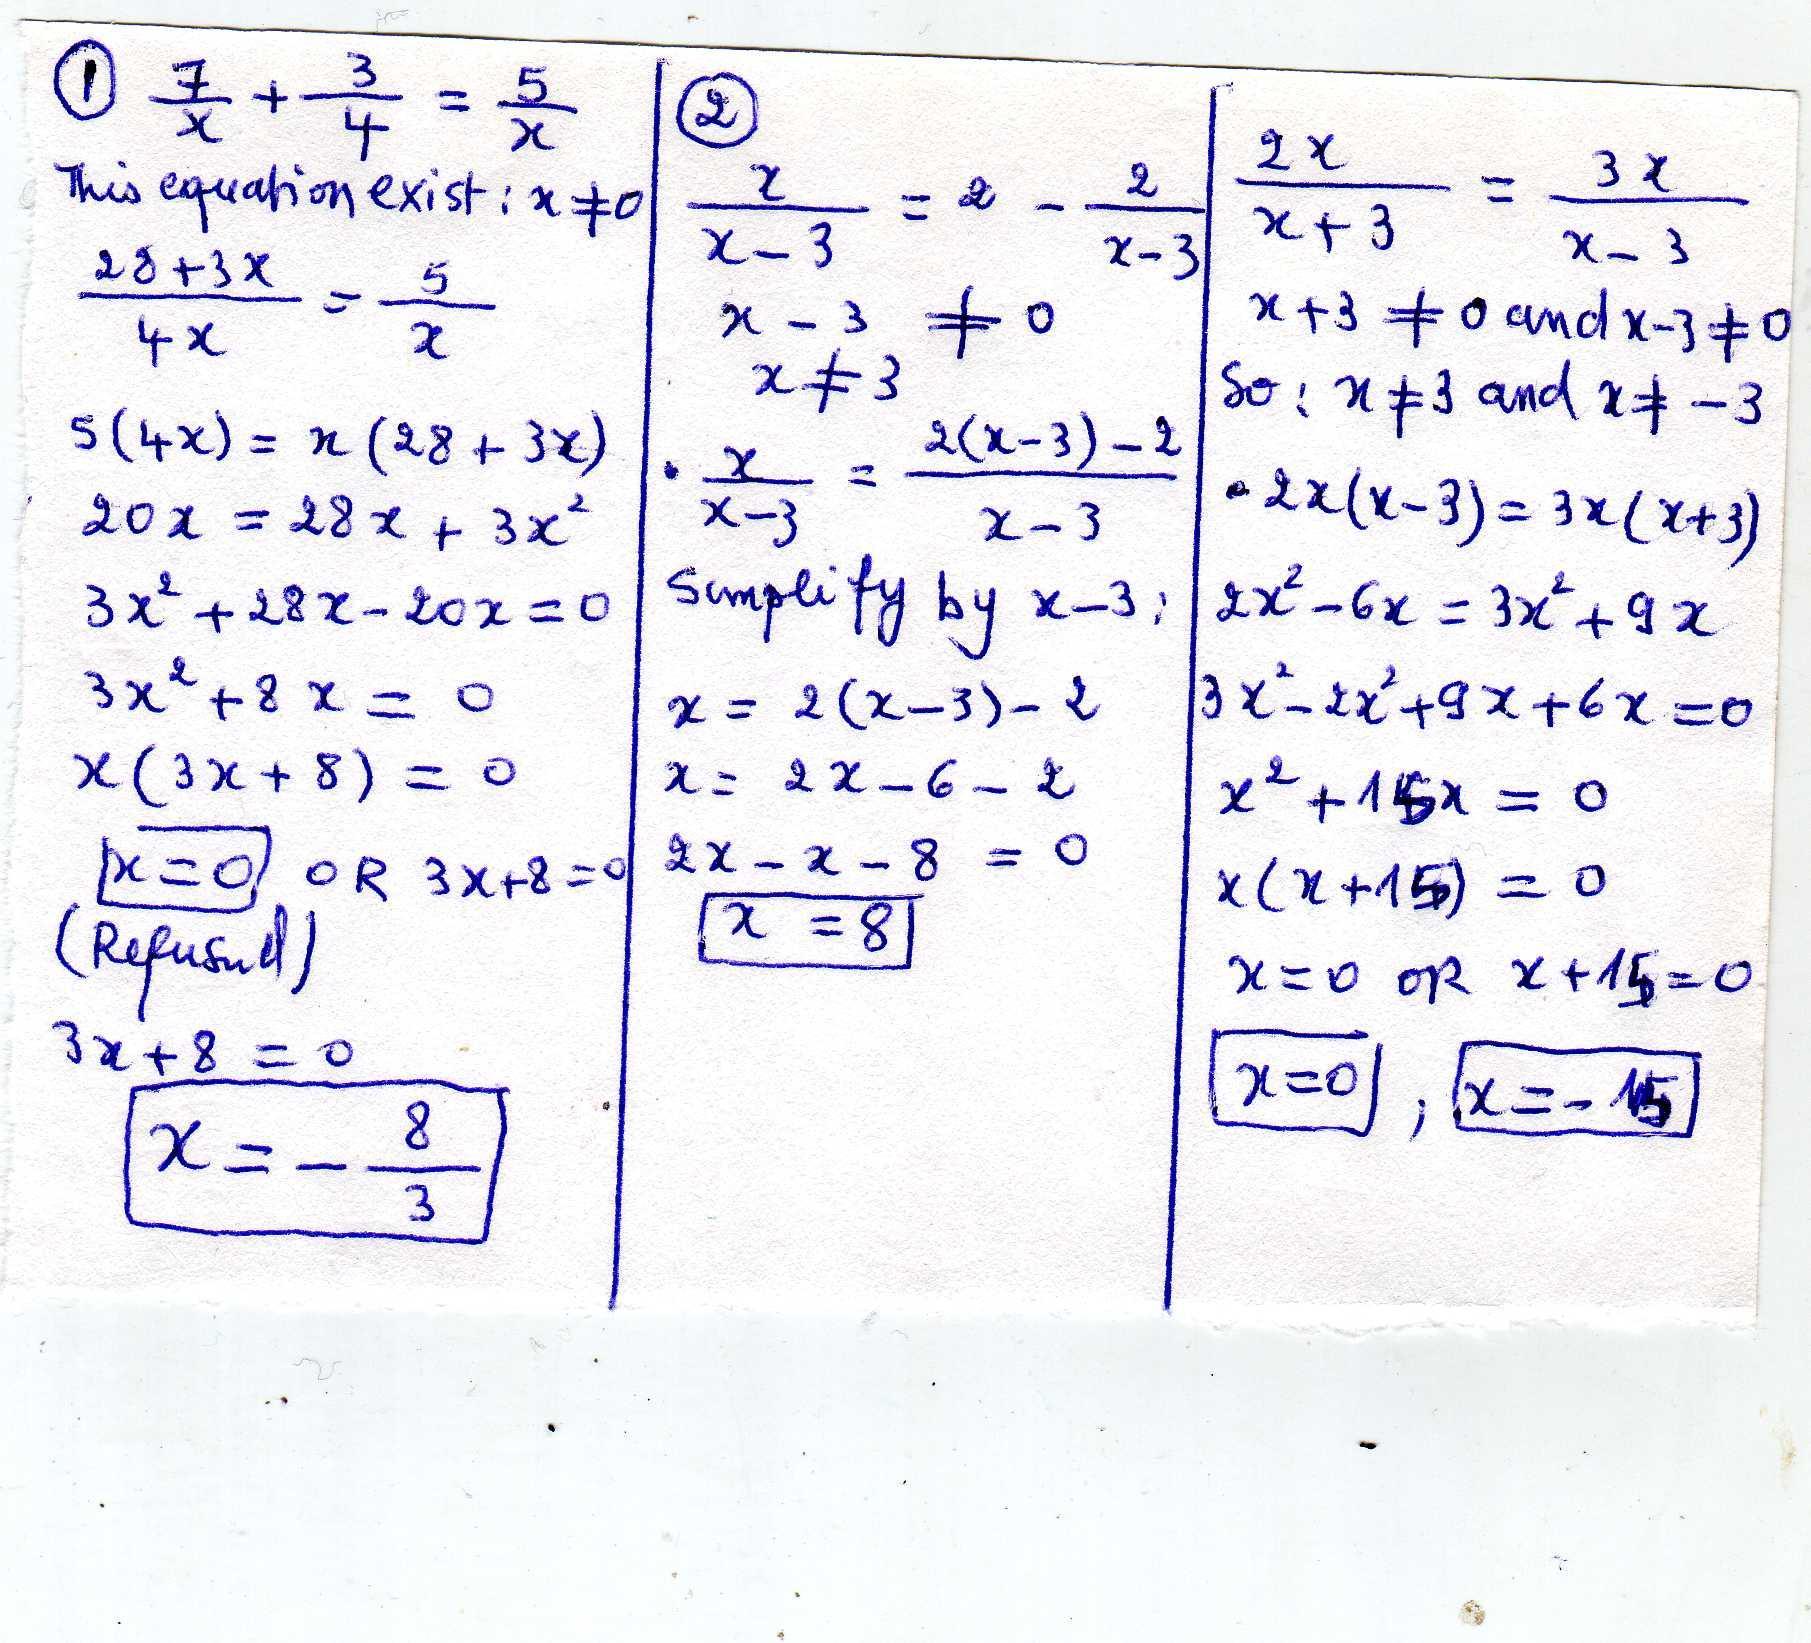 ① 7/x + 3/4 = 5/x
This equation exist : x ≠ 0
28+3x/4x = 5/x
5(4x) = x(28 + 3x)
20x = 28x + 3x²
3x² + 28x - 20x = 0
3x² + 8x = 0
x(3x + 8) = 0
x = 0 OR 3x+8 = 0
(Refused)
3x + 8 = 0
x = - 8/3
②
x/x-3 = 2 - 2/x-3
x - 3 ≠ 0
x ≠ 3
• x/x-3 = 2(x-3)-2/x-3
Simplify by x-3 :
x = 2(x-3)-2
x = 2x - 6 - 2
2x - x - 8 = 0
x = 8
2x/x+3 = 3x/x-3
x+3 ≠ 0 and x-3 ≠ 0
So : x ≠ 3 and x ≠ -3
• 2x(x-3) = 3x(x+3)
2x² - 6x = 3x² + 9x
3x² - 2x² + 9x + 6x = 0
x² + 15x = 0
x(x+15) = 0
x = 0 OR x + 15 = 0
x = 0 , x = - 15